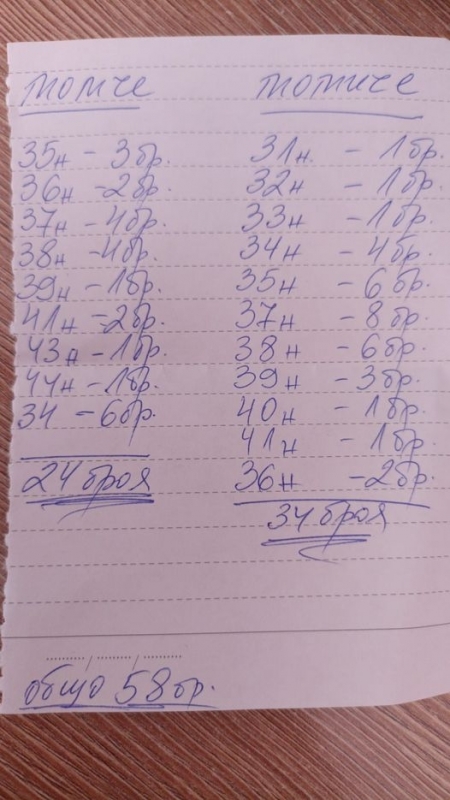 момче
35н - 3бр.
36н - 2бр.
37н - 4бр.
38н - 4бр.
39н - 1бр.
41н - 2бр.
43н - 1бр.
44н - 1бр.
34 - 6бр.
24 броя
момиче
31н. - 1бр.
32н - 1бр.
33н - 1бр.
34н - 4бр.
35н - 6бр.
37н - 8бр.
38н - 6бр.
39н - 3бр.
40н - 1бр.
41н - 1бр.
36н - 2бр.
34 броя
общо 58бр.